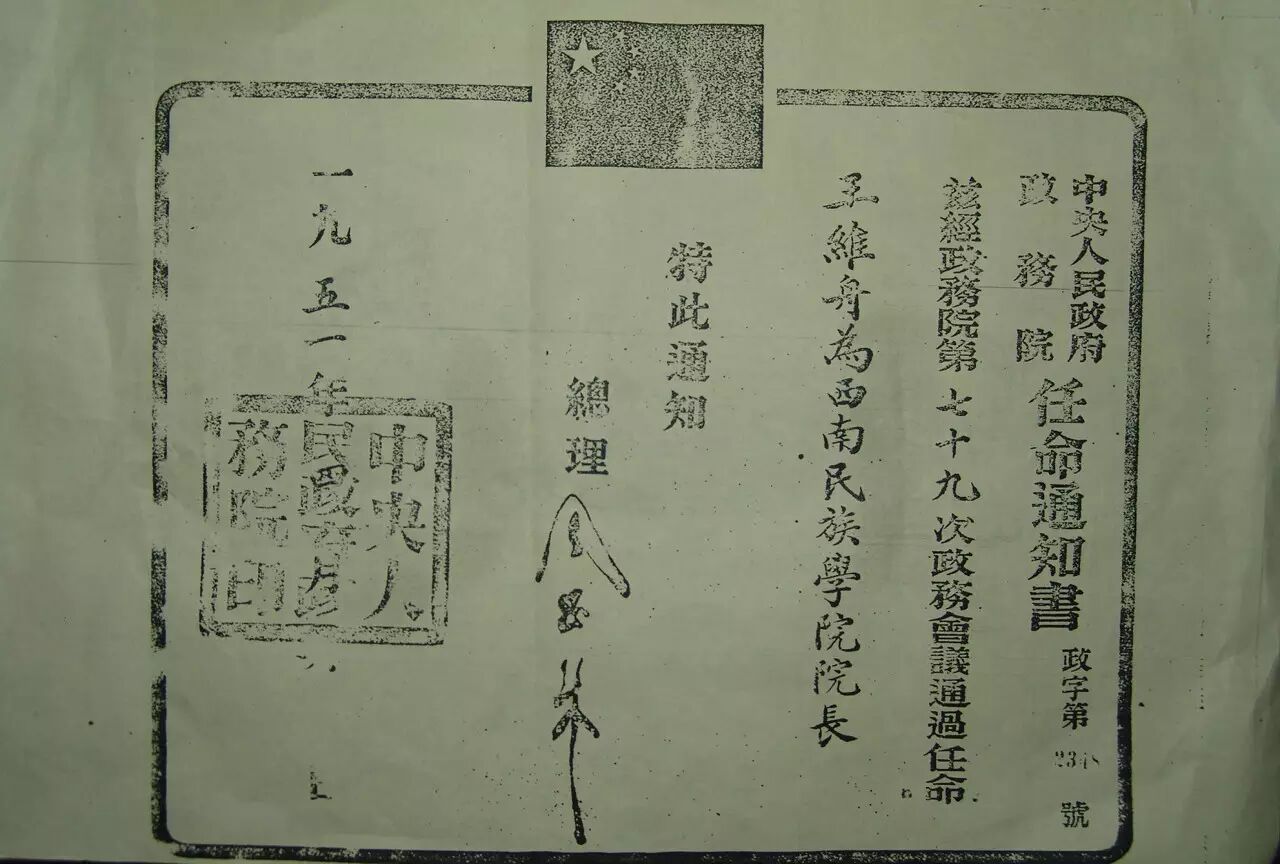 中央人民政府
政務院
任命通知書
政字第234號
茲經政務院第七十九次政務會議通過任命
王維舟為西南民族學院院長
特此通知
總理
周恩來
一九五一年
中央人
民政府政
務院印